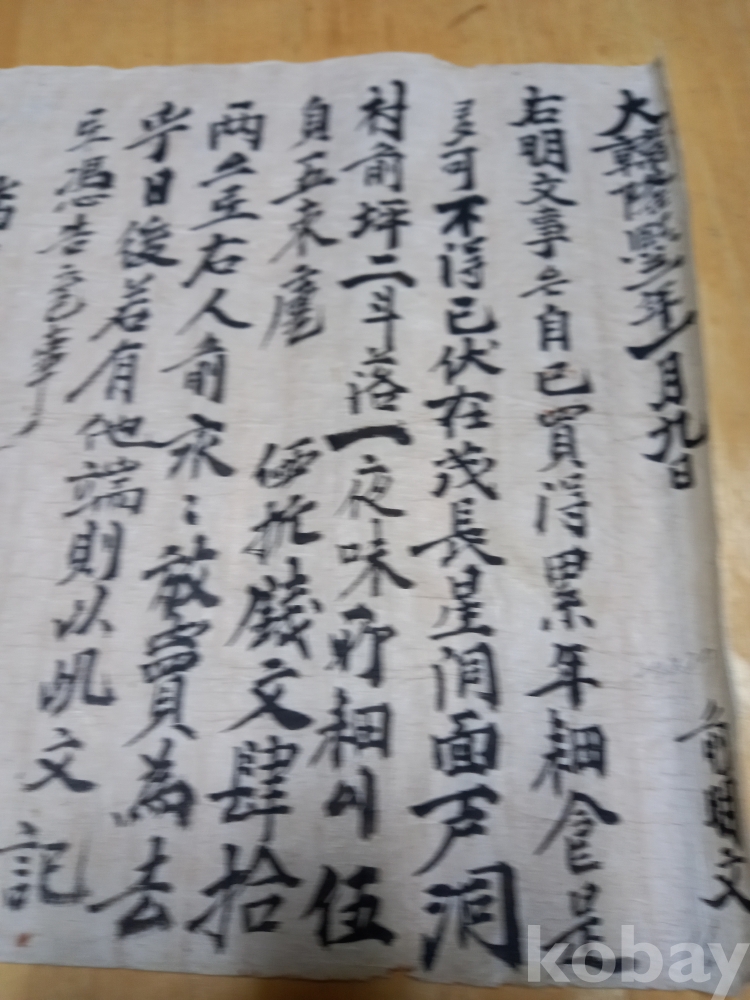 大韓隆熙二年一月九日 前明文
右明文事段自己買得累年耕食是
多可不得已伏在茂長星洞面戶洞
村前坪二斗落一夜味所耕伍
負五束庫 価折錢文肆拾
両右人前永〻放賣為去
乎日後若有他端則以此文記
憑告官事
kobay